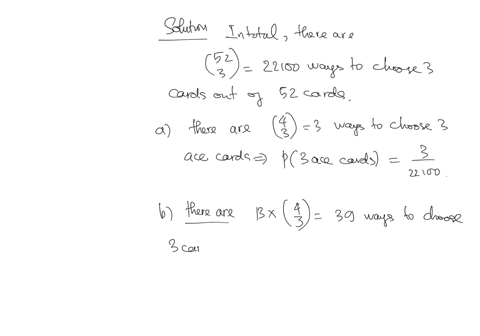 Solution In total, there are
(52 3) = 22100 ways to choose 3
cards out of 52 cards.
a) there are (4 3) = 3 ways to choose 3
ace cards ⇒ P(3 ace cards) = 3/22100.
b) there are 13 × (4 3) = 39 ways to choose
3